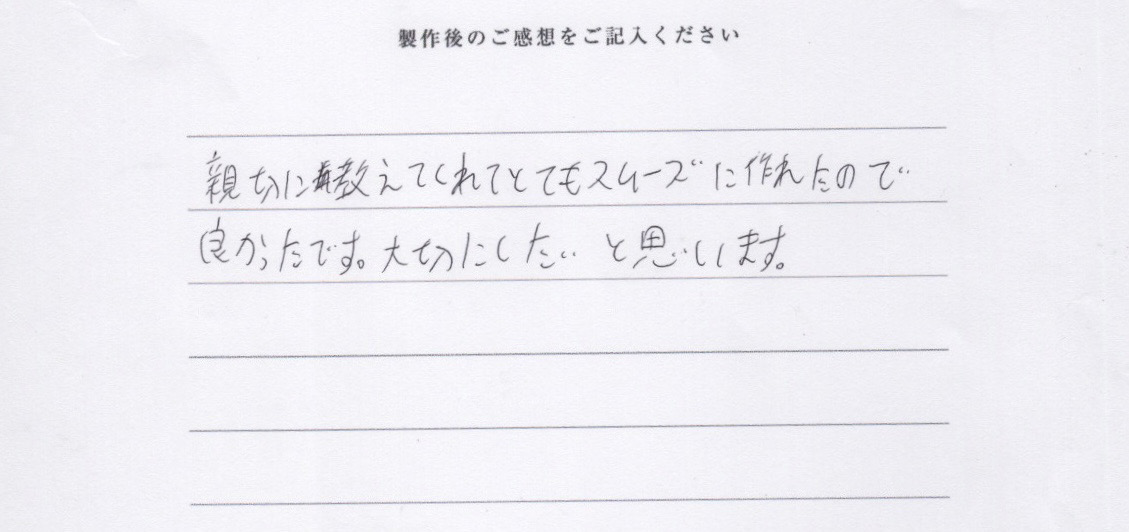 製作後のご感想をご記入ください
親切に教えてくれてとてもスムーズに作れたので
良かったです。大切にしたいと思いします。